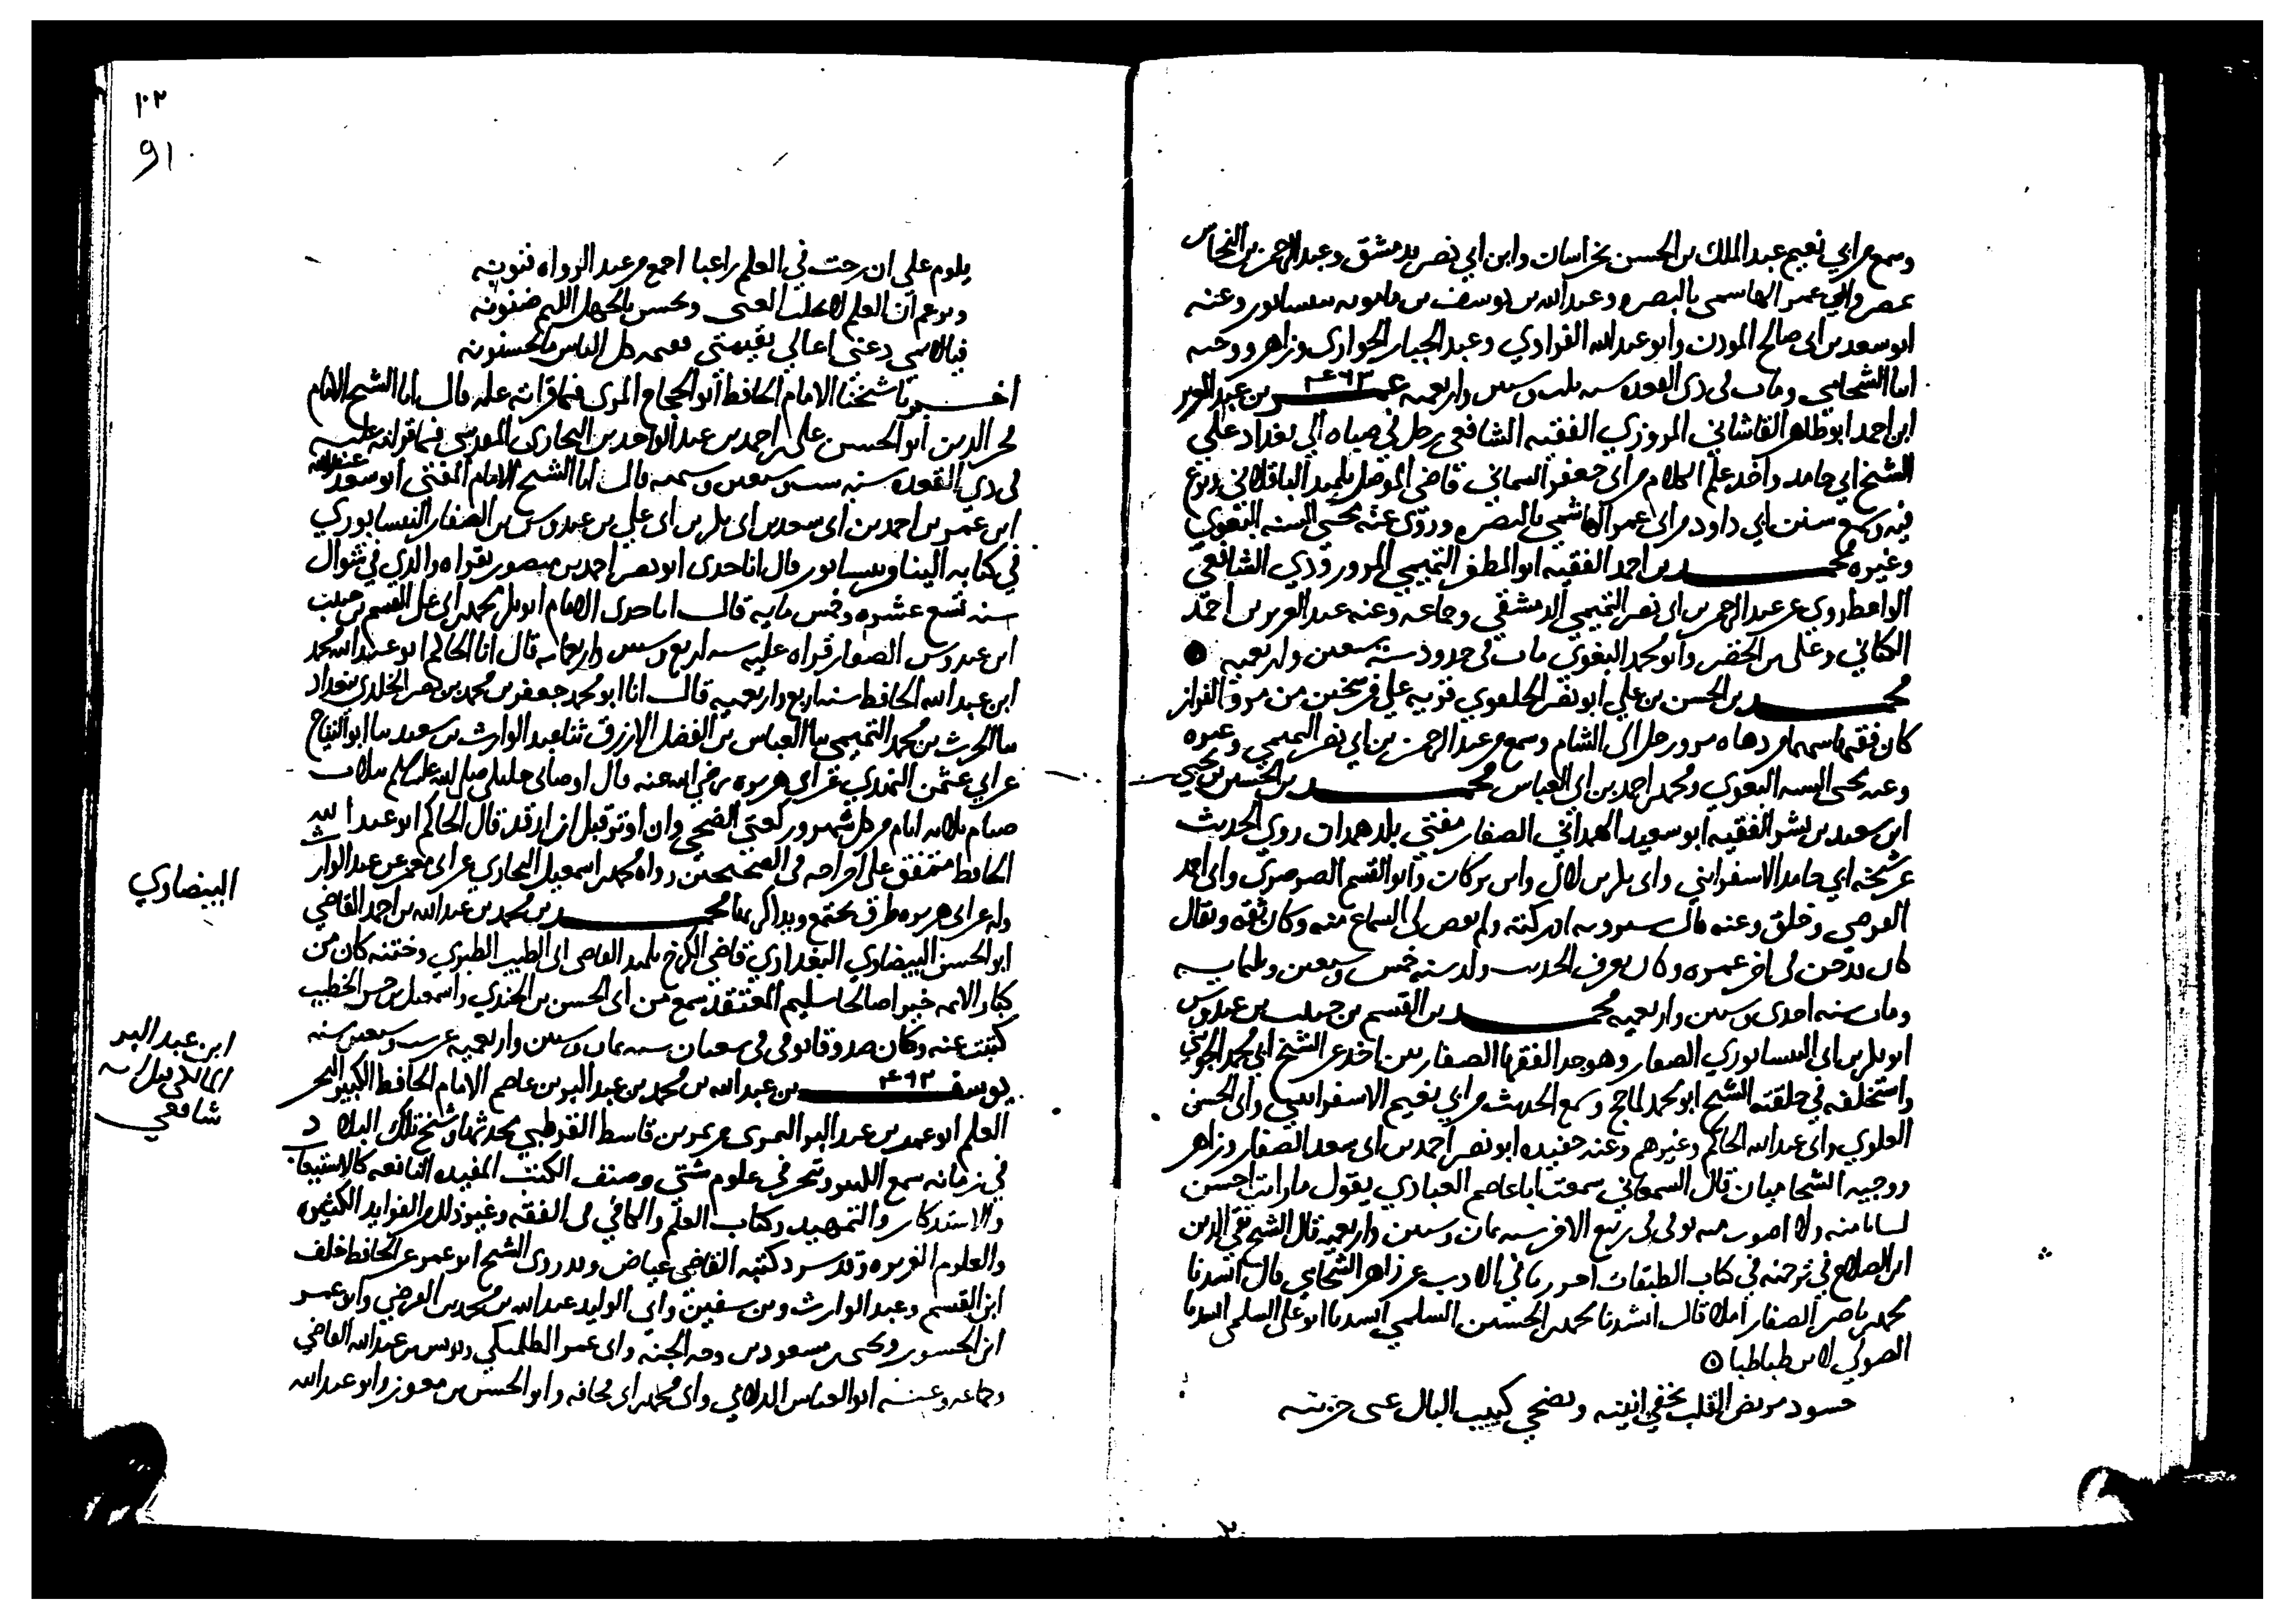 وسمع من ابي نعيم عبد الملك بن الحسن بخراسان وابن ابي نصر بدمشق وعبد الرحمن بن النحاس
بمصر وابي عمر الهاسمي بالبصره وعبد الله بن يوسف بن مامويه بنيسابور وعنه
ابو سعد بن ابي صالح المودن وابو عبد الله الفراوي وعبد الجبار الخواري وزاهر ووجيه
ابنا الشحامي ومات في ذي القعده سنه ثلث وستين واربعميه ٤٦٣ عمر بن عبد العزيز
ابن احمد ابو طاهر الفاشاني المروزي الفقيه الشافعي رحل في صباه الي بغداد علي
الشيخ ابي حامد واخذ علم الكلام من ابي جعفر السماني قاضي الموصل تلميد الباقلاني وبرع
فيه وسمع سنن ابي داود من ابي عمر الهاشمي بالبصره وروي عنه محيي السنه البغوي
وغيره محمد بن احمد الفقيه ابو المظفر التميمي المروروذي الشافعي
الواعظ روي عن عبد الرحمن بن ابي نصر التميمي الدمشقي وجماعه وعنه عبد العزيز بن احمد
الكتاني وعلي بن الخضر وابو محمد البغوي مات في حدود سنه سبعين واربعميه
محمد بن الحسن بن علي ابو نصر الجلفري قريه علي فرسخين من مرو القزاز
كان فقيها من دهاه مرو رحل الي الشام وسمع من عبد الرحمن بن ابي نصر التميمي وغيره
وعنه محيي السنه البغوي ومحمد بن احمد بن ابي العباس محمد بن الحسين بن يحيي
ابن سعيد بن بشر الفقيه ابو سعيد الهمداني الصفار مفتي بلد همدان روي الحديث
عن شيخه ابي حامد الاسفرايني وابي بكر بن لال وابن بركات وابو القسم الصرصري وابي احمد
الفرضي وخلق وعنه قال شيرويه ادركته ولم يقض لي السماع منه وكان ثقه ويقال
كان تدجن في اخر عمره وكان يعرف الحديث ولد سنه خمس وسبعين وثلثمايه
ومات سنه احدي وستين واربعميه محمد بن القسم بن حبيب بن عبدوس
ابو بكر بن ابي النيسابوري الصفار وهو جد الفقها الصفارين اخذ عن الشيخ ابي محمد الجويني
واستخلفه في حلقته الشيخ ابو محمد لما حج وسمع الحديث من ابي نعيم الاسفرايني وابي الحسن
العلوي وابي عبد الله الحاكم وغيرهم وعنه حفيده ابو نصر احمد بن ابي سعد الصفار وزاهر
ووجيه الشحاميان قال السمعاني سمعت ابا عاصم العبادي يقول ما رايت احسن
لسانا منه ولا اصوب منه توفي في ربيع الاخر سنه ثمان وستين واربعميه قال الشيخ تقي الدين
ابن الصلاح في ترجمته في كتاب الطبقات اخبرنا في الادب عن زاهر الشحامي قال انشدنا
محمد بن ناصر الصفار املا قال انشدنا محمد بن الحسين السلمي انشدنا ابو علي السلمي انشدنا
الصولي لابن طباطبا
حسود مريض القلب يخفي انينه ويضحي كييب البال عني حزينه
١٠٢
91
يلوم علي ان رحت في العلم راغبا اجمع من عند الرواه فنونه
ويزعم ان العلم لا يجلب الغني ويحسن بالجهل الذميم ظنونه
فيا لايمي دعني اغالي بقيمتي فقيمه كل الناس ما يحسنونه
اخبرنا شيخنا الامام الحافظ ابو الحجاج المزي فيما قراته عليه قال انا الشيخ الامام
فخر الدين ابو الحسن علي بن احمد بن عبد الواحد بن البخاري المقدسي فيما قرات عليه
في ذي القعده سنه ست وسبعين وستميه قال انا الشيخ الامام المفتي ابو سعد عبد الله
ابن عمر بن احمد بن ابي سعد بن ابي بكر بن ابي علي بن عبدوس بن الصفار النيسابوري
في كتابه الينا من نيسابور قال انا جدي ابو نصر احمد بن منصور بقراه والدي في شوال
سنه تسع عشره وخمس مايه قال انا جدي الامام ابو بكر محمد بن ابي علي القسم بن حبيب
ابن عبدوس الصفار قراه عليه سنه اربع وستين واربعمايه قال انا الحاكم ابو عبد الله محمد
ابن عبد الله الحافظ سنه اربع واربعميه قال انا ابو محمد جعفر بن محمد بن نصر الخلدي ببغداد
ثنا الحرث بن محمد التميمي ثنا العباس بن الفضل الازرق ثنا عبد الوارث بن سعيد ثنا ابو التياح
عن ابي عثمن النهدي عن ابي هريره رضي الله عنه قال اوصاني خليلي صلي الله عليه وسلم بثلاث
صيام ثلاثه ايام من كل شهر وركعتي الضحي وان اوتر قبل ان ارقد قال الحاكم ابو عبد الله
الحافظ متفق علي اخراجه في الصحيحين رواه محمد بن اسمعيل البخاري عن ابي معمر عن عبد الوارث
وله عن ابي هريره طرق تجتمع ويذاكر بها محمد بن محمد بن عبد الله بن احمد القاضي
ابو الحسن البيضاوي البغدادي قاضي الكرخ تلميد القاضي ابي الطيب الطبري وختنه كان من
كبار الايمه خيرا صالحا سليم المعتقد سمع من ابي الحسن بن الجندي واسمعيل بن حسن الخطيب
كتبت عنه وكان صدوقا توفي في شعبان سنه ثمان وستين واربعميه عن ست وسبعين سنه
يوسف ٤٦٣ بن عبد الله بن محمد بن عبد البر بن عاصم الامام الحافظ الكبير البحر
العلم ابو عمر بن عبد البر النمري من نمر بن قاسط القرطبي محدثها وشيخ تلك البلاد
في زمانه سمع الكثير وتبحر في علوم شتي وصنف الكتب المفيده النافعه كالاستيعاب
والاستدكار والتمهيد وكتاب العلم والكافي في الفقه وغير ذلك من الفوايد الكثيره
والعلوم الغزيره وقد سرد كتبه القاضي عياض وقد روي الشيخ ابو عمر عن الحافظ خلف
ابن القسم وعبد الوارث بن سفين وابي الوليد عبد الله بن محمد بن الفرضي وابو عمر
ابن الجسور ويحيي بن مسعود بن وجه الجنه وابي عمر الطلمنكي ويونس بن عبد الله القاضي
وجماعه وعنه ابو العباس الدلائي وابي محمد بن ابي قحافه وابو الحسن بن مفوز وابو عبد الله
البيضاوي
ابن عبد البر
المالكي قيل انه
شافعي